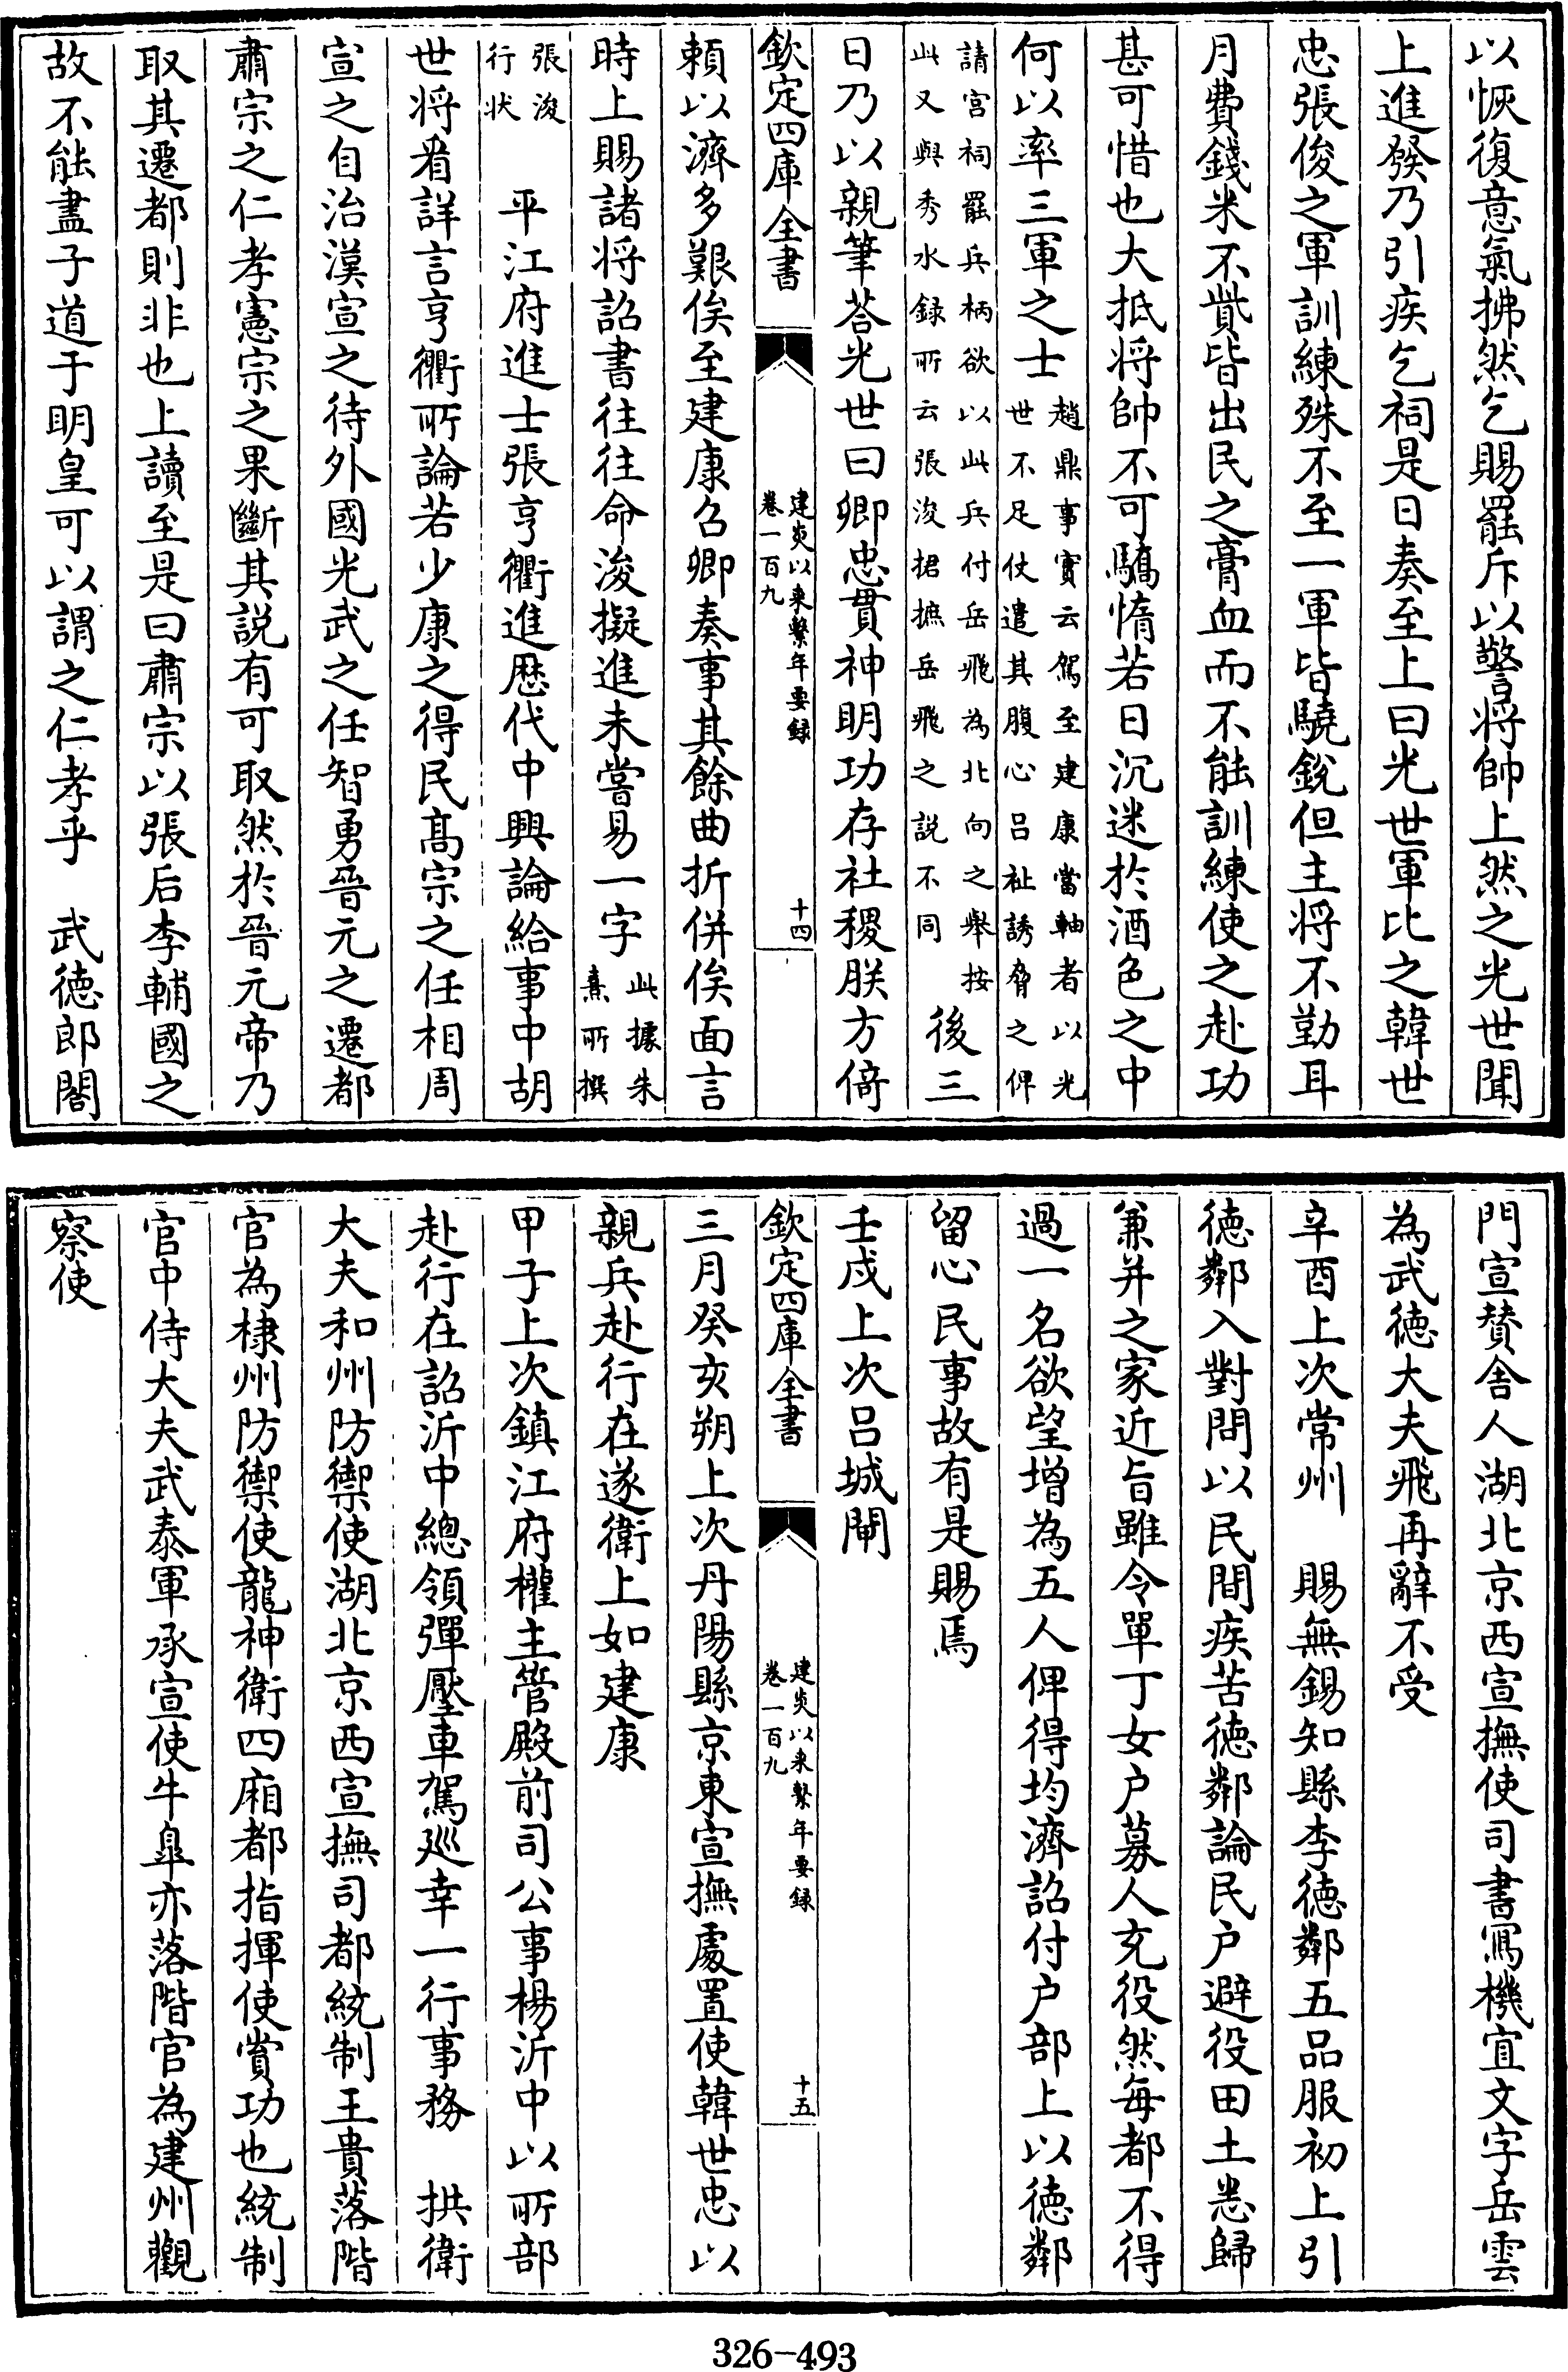 以恢復意氣拂然乞賜罷斥以警將帥上然之光世聞
上進發乃引疾乞祠是日奏至上曰光世軍比之韓世
忠張俊之軍訓練殊不至一軍皆驍銳但主将不勤耳
月費錢米不貲皆出民之膏血而不能訓練使之赴功
甚可惜也大抵将帥不可驕惰若日沉迷於酒色之中
何以率三軍之士趙鼎事實云駕至建康當軸者以光
世不足仗遣其腹心吕祉誘脅之俾
請宫祠罷兵柄欲以此兵付岳飛為北向之舉按
此又與秀水録所云張浚捃摭岳飛之説不同後三
日乃以親筆荅光世曰卿忠貫神明功存社稷朕方倚
欽定四庫全書
建炎以來繫年要録
卷一百九
十四
賴以濟多艱俟至建康召卿奏事其餘曲折併俟面言
時上賜諸将詔書往往命浚擬進未嘗易一字此據朱
熹所撰
張浚
行狀　平江府進士張亨衢進歴代中興論給事中胡
世将看詳言亨衢所論若少康之得民髙宗之任相周
宣之自治漢宣之待外國光武之任智勇晉元之遷都
肅宗之仁孝憲宗之果斷其説有可取然於晉元帝乃
取其遷都則非也上讀至是曰肅宗以張后李輔國之
故不能盡子道于明皇可以謂之仁孝乎　武徳郎閤
門宣贊舍人湖北京西宣撫使司書寫機宜文字岳雲
為武徳大夫飛再辭不受
辛酉上次常州　賜無錫知縣李徳鄰五品服初上引
徳鄰入對問以民間疾苦徳鄰論民户避役田土悉歸
兼并之家近旨雖令單丁女户募人充役然每都不得
過一名欲望增為五人俾得均濟詔付户部上以徳鄰
留心民事故有是賜焉
壬戌上次吕城閘
欽定四庫全書
建炎以來繫年要録
卷一百九
十五
三月癸亥朔上次丹陽縣京東宣撫處置使韓世忠以
親兵赴行在遂衛上如建康
甲子上次鎮江府權主管殿前司公事楊沂中以所部
赴行在詔沂中總領彈壓車駕廵幸一行事務　拱衛
大夫和州防禦使湖北京西宣撫司都統制王貴落階
官為棣州防禦使龍神衛四廂都指揮使賞功也統制
官中侍大夫武泰軍承宣使牛臯亦落階官為建州觀
察使
326-493